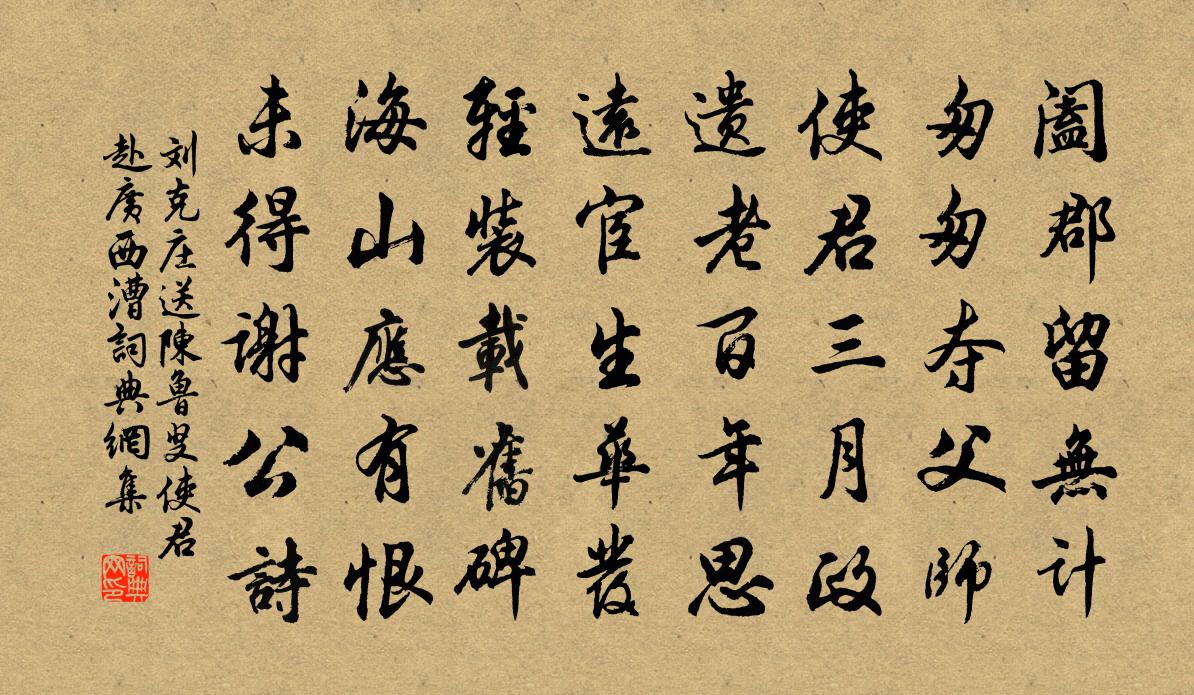 闔郡留無計
匆匆夺父師
使君三月政
遗老百年思
遠宦生華發
輕裝載舊碑
海山應有恨
未得谢公詩
刘克庄送陳魯叟使君
赴廣西漕詞典網集
詞典网印